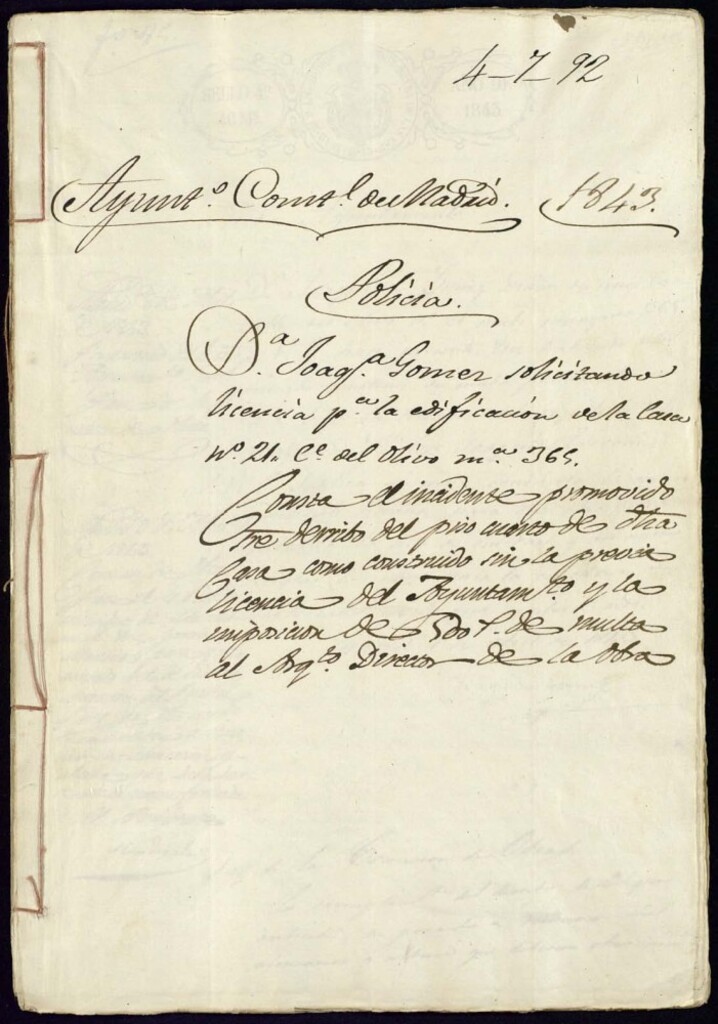 4-7-92
Ayunt.º Const.l de Madrid. 1843.
Policia.
D.ª Joaq.ª Gomez solicitando
licencia p.ª la edificacion de la Casa
nº. 21. C.e del Olivo m.ª 365.
Consta el incidente promovido
sre derribo del piso cuarto de dha
Casa como construido sin la previa
licencia del Ayuntam.to y la
imposicion de 500 r.s de multa
al Arq.to Director de la Obra